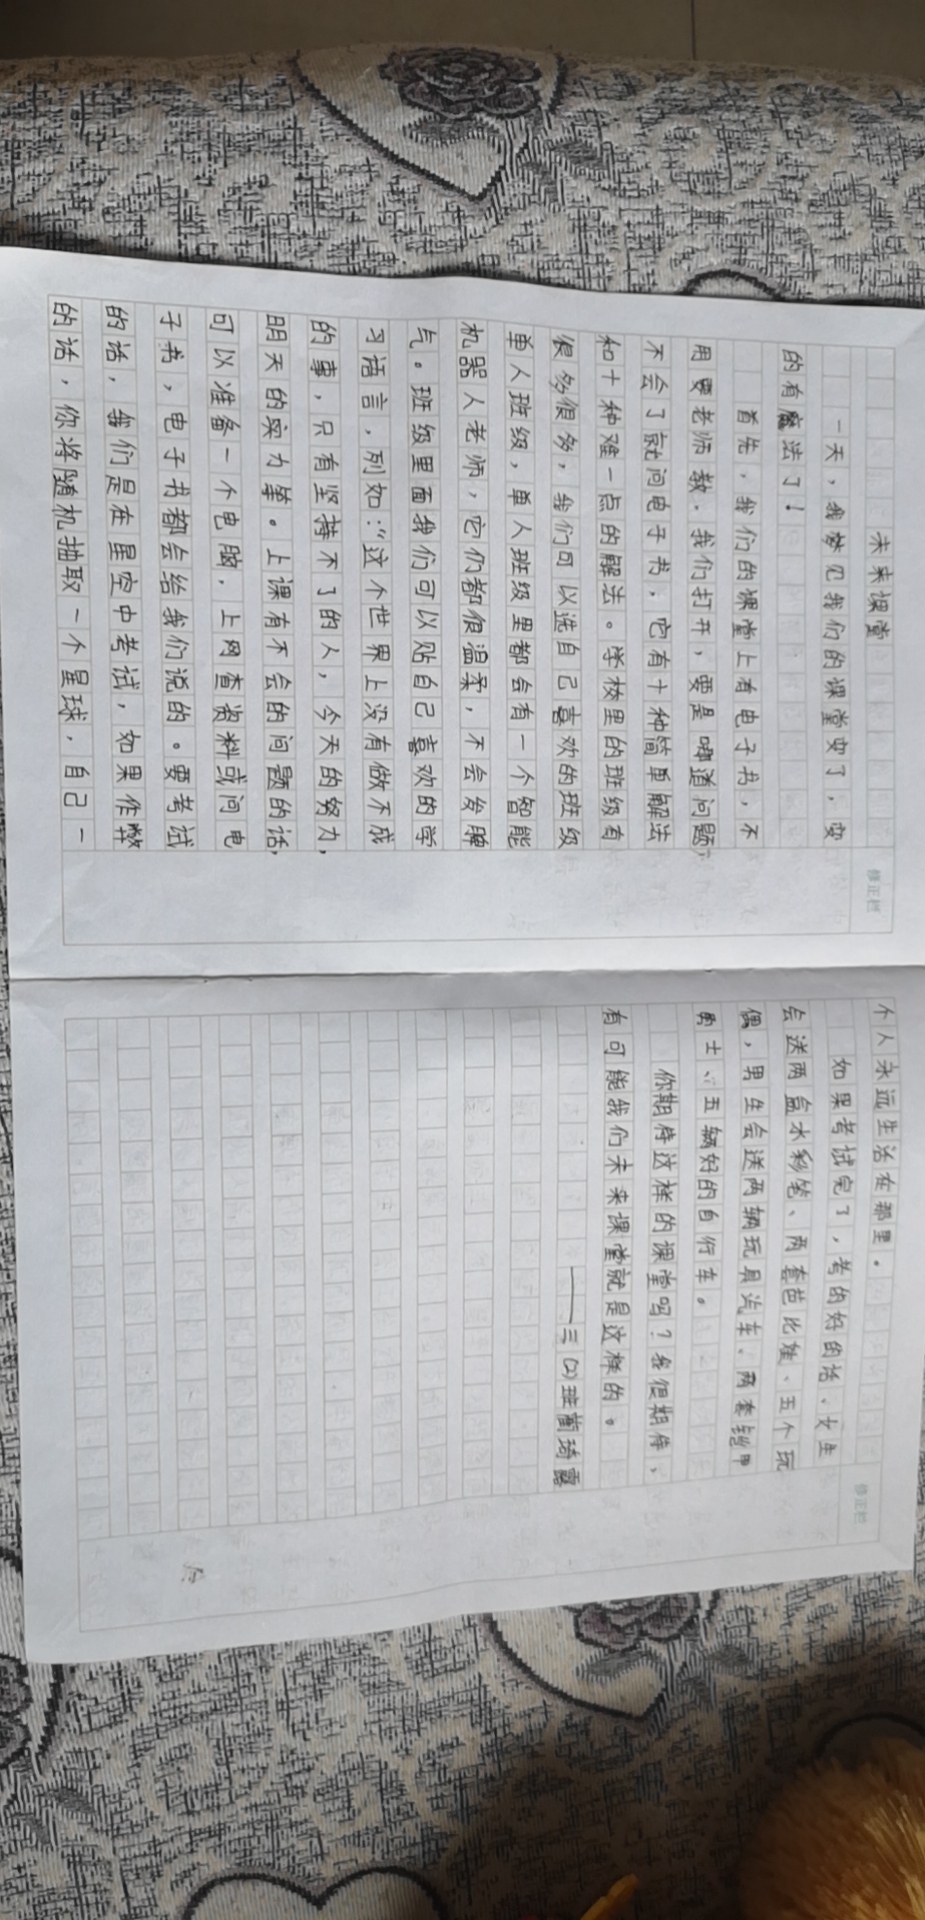 未来课堂
一天，我梦见我们的课堂变了，变
的有魔法了！
首先，我们的课堂上有电子书，不
用要老师教，我们打开，要是哪道问题
不会了就问电子书，它有十种简单解法
和十种难一点的解法。学校里的班级有
很多很多，我们可以选自己喜欢的班级
单人班级，单人班级里都会有一个智能
机器人老师，它们都很温柔，不会发脾
气。班级里面我们可以贴自己喜欢的学
习语言，列如：“这个世界上没有做不成
的事，只有坚持不了的人，今天的努力，
明天的实力等。上课有不会的问题的话，
可以准备一个电脑，上网查资料或问电
子书，电子书都会给我们说的。要考试
的话，我们是在星空中考试，如果作弊
的话，你将随机抽取一个星球，自己一
修正栏
个人永远生活在那里。
如果考试完了，考的好的话、女生
会送两盒水彩笔、两套芭比娃、五个玩
偶，男生会送两辆玩具汽车、两套铠甲
勇士、五辆好的自行车。
你期待这样的课堂吗？我很期待，
有可能我们未来课堂就是这样的。
——三（2）班蔺琦露
修正栏